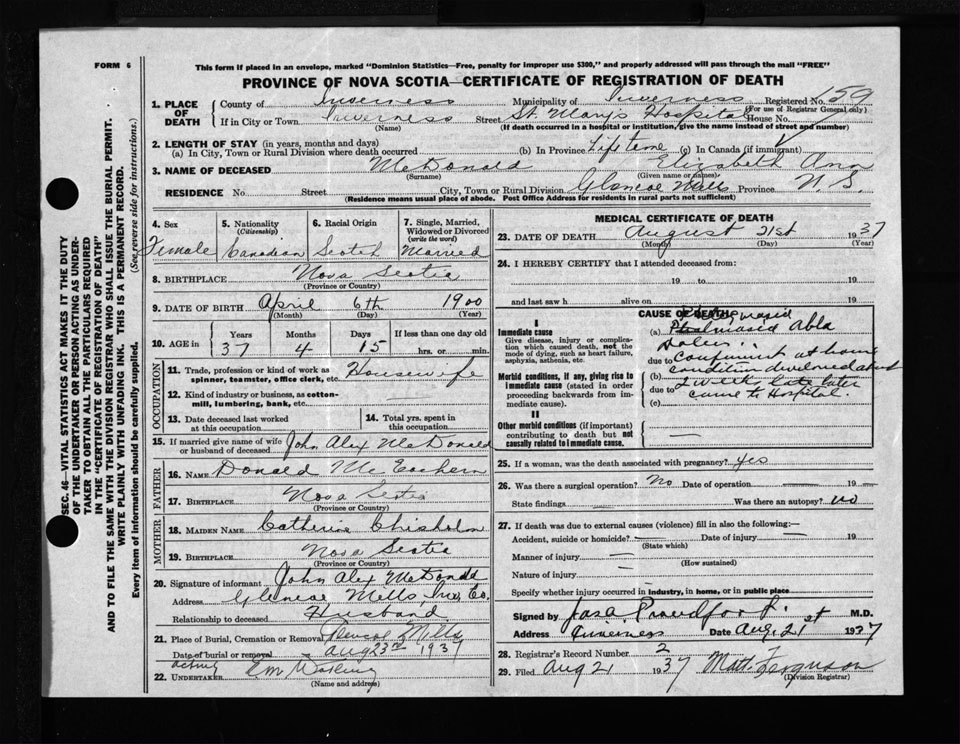 FORM 6
This form if placed in an envelope, marked "Dominion Statistics—Free, penalty for improper use $300," and properly addressed will pass through the mail "FREE"
PROVINCE OF NOVA SCOTIA—CERTIFICATE OF REGISTRATION OF DEATH
1. PLACE OF DEATH
County of Inverness Municipality of Inverness Registered No. 159
(For use of Registrar General only)
If in City or Town Inverness Street St. Marys Hospital House No.
(Name) (If death occurred in a hospital or institution, give the name instead of street and number)
2. LENGTH OF STAY (in years, months and days)
(a) In City, Town or Rural Division where death occurred (b) In Province Lifetime (c) In Canada (if immigrant)
3. NAME OF DECEASED McDonald Elizabeth Ann
(Surname) (Given name or names)
RESIDENCE No. Street City, Town or Rural Division Glencoe Mills Province N. S.
(Residence means usual place of abode. Post Office Address for residents in rural parts not sufficient)
4. Sex Female
5. Nationality (Citizenship) Canadian
6. Racial Origin Scotch
7. Single, Married, Widowed or Divorced (write the word) Married
8. BIRTHPLACE Nova Scotia
(Province or Country)
9. DATE OF BIRTH April 6th 1900
(Month) (Day) (Year)
10. AGE in Years Months Days If less than one day old
37 4 15 hrs. or min.
OCCUPATION
11. Trade, profession or kind of work as spinner, teamster, office clerk, etc. Housewife
12. Kind of industry or business, as cotton-mill, lumbering, bank, etc.
13. Date deceased last worked at this occupation
14. Total yrs. spent in this occupation
15. If married give name of wife or husband of deceased John Alex McDonald
FATHER
16. NAME Donald McEachern
17. BIRTHPLACE Nova Scotia
(Province or Country)
MOTHER
18. MAIDEN NAME Catherine Chisholm
19. BIRTHPLACE Nova Scotia
(Province or Country)
20. Signature of informant John Alex McDonald
Address Glencoe Mills, Inv. Co.
Relationship to deceased Husband
21. Place of Burial, Cremation or Removal Glencoe Mills
Date of burial or removal Aug 23rd 1937
acting
22. UNDERTAKER
(Name and address)
MEDICAL CERTIFICATE OF DEATH
23. DATE OF DEATH August 21st 1937
(Month) (Day) (Year)
24. I HEREBY CERTIFY that I attended deceased from:
19 to 19
and last saw h alive on 19
CAUSE OF DEATH
I
Immediate cause
Give disease, injury or complication which caused death, not the mode of dying, such as heart failure, asphyxia, asthenia, etc.
(a)
due to confinement at home
Morbid conditions, if any, giving rise to immediate cause (stated in order proceeding backwards from immediate cause).
(b) condition developed about
due to 1 week later
(c) came to Hospital.
II
Other morbid conditions (if important) contributing to death but not causally related to immediate cause. —
25. If a woman, was the death associated with pregnancy? yes
26. Was there a surgical operation? No Date of operation — 19
State findings — Was there an autopsy? no
27. If death was due to external causes (violence) fill in also the following:—
Accident, suicide or homicide? — Date of injury — 19
(State which)
Manner of injury —
(How sustained)
Nature of injury —
Specify whether injury occurred in industry, in home, or in public place
Signed by Jas A. Proudfoot M.D.
Address Inverness Date Aug. 21st 1937
28. Registrar's Record Number 2
29. Filed Aug 21 1937 Matt. Ferguson
(Division Registrar)
SEC. 46—VITAL STATISTICS ACT MAKES IT THE DUTY
OF THE UNDERTAKER OR PERSON ACTING AS UNDER-
TAKER TO OBTAIN ALL THE PARTICULARS REQUIRED
IN THE "CERTIFICATE OF REGISTRATION OF DEATH"
AND TO FILE THE SAME WITH THE DIVISION REGISTRAR WHO SHALL ISSUE THE BURIAL PERMIT.
WRITE PLAINLY WITH UNFADING INK. THIS IS A PERMANENT RECORD.
Every item of information should be carefully supplied. (See reverse side for instructions.)